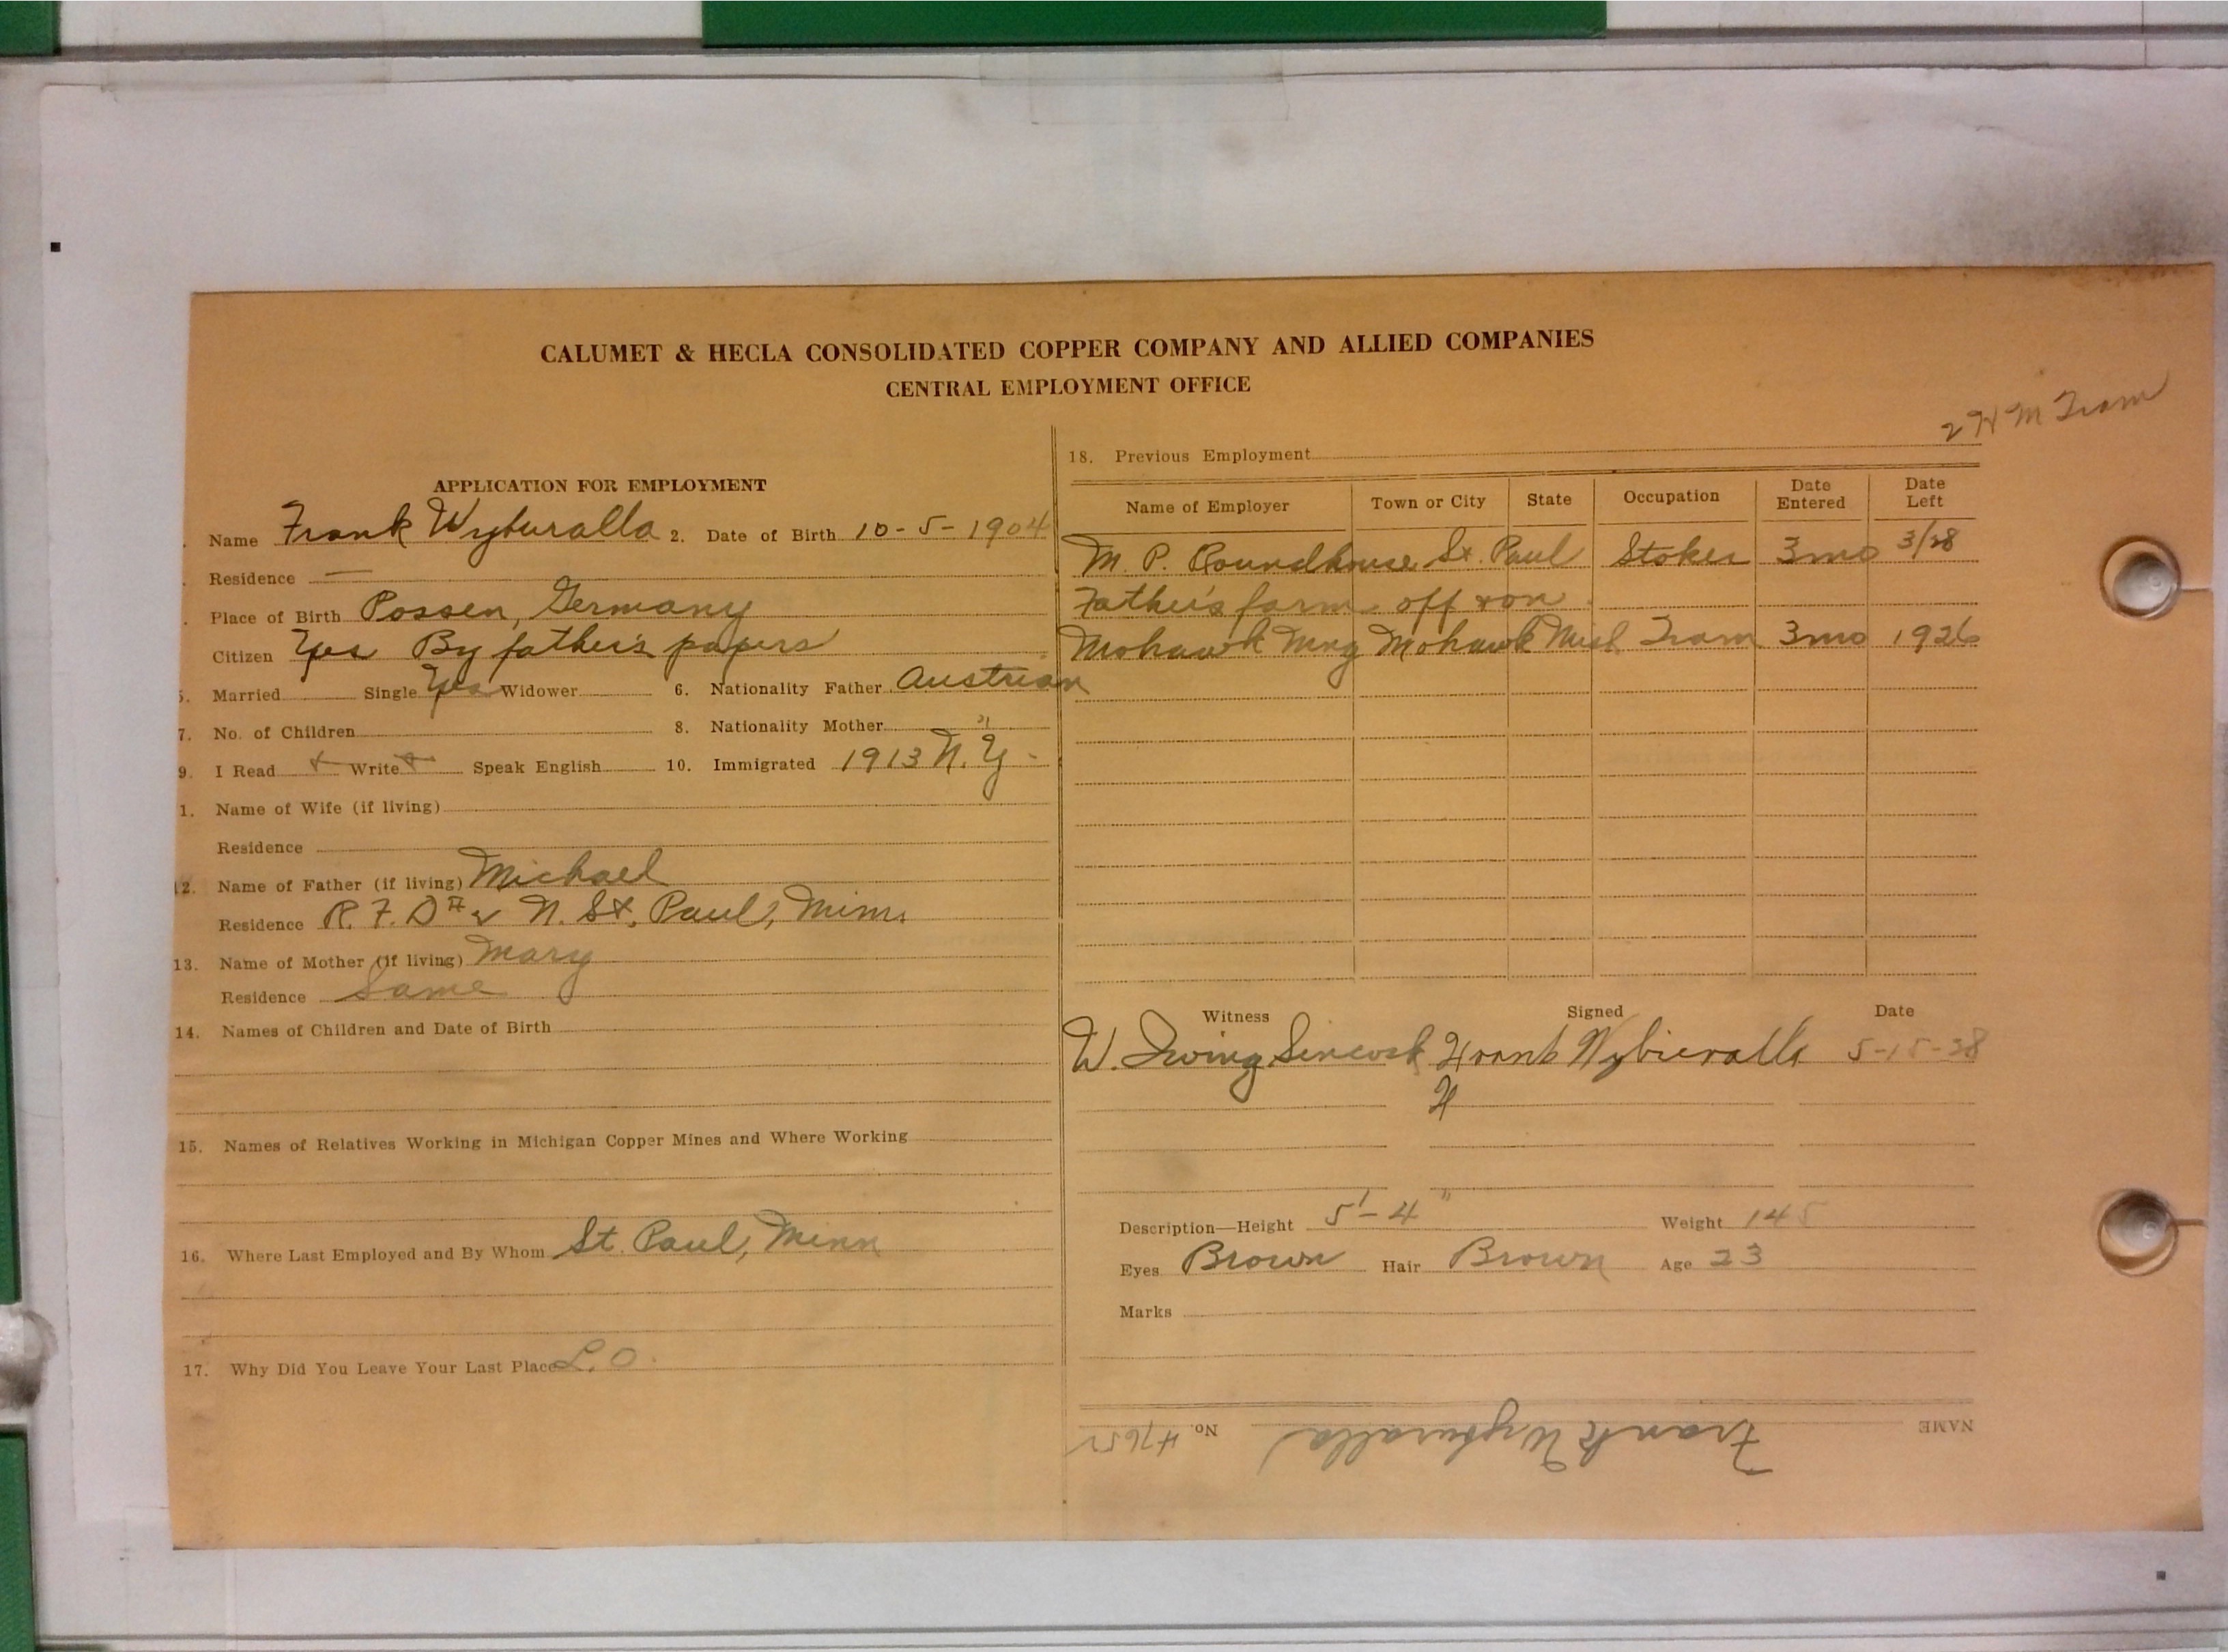 CALUMET & HECLA CONSOLIDATED COPPER COMPANY AND ALLIED COMPANIES
CENTRAL EMPLOYMENT OFFICE
2 H M Tram
APPLICATION FOR EMPLOYMENT
Name Frank Wyburalla 2. Date of Birth 10-5-1904
Residence —
Place of Birth Possen, Germany
Citizen Yes By father's papers
5. Married Single Yes Widower 6. Nationality Father Austrian
7. No. of Children 8. Nationality Mother "
9. I Read + Write + Speak English 10. Immigrated 1913 N.Y -
1. Name of Wife (if living)
Residence
12. Name of Father (if living) Michael
Residence R.F.D #2 N. St. Paul, Minn.
13. Name of Mother (if living) Mary
Residence Same
14. Names of Children and Date of Birth
15. Names of Relatives Working in Michigan Copper Mines and Where Working
16. Where Last Employed and By Whom St. Paul, Minn
17. Why Did You Leave Your Last Place L.O.
18. Previous Employment
Name of Employer Town or City State Occupation Date Entered Date Left
M. P. Roundhouse St. Paul Stoker 3mo 3/28
Father's farm - off + on
Mohawk Mng Mohawk Mich Tram 3mo 1926
Witness Signed Date
W. Irving Sincock Frank Wybieralla 5-15-28
Description—Height 5'-4" Weight 145
Eyes Brown Hair Brown Age 23
Marks
NAME Frank Wyburalla No. 47652